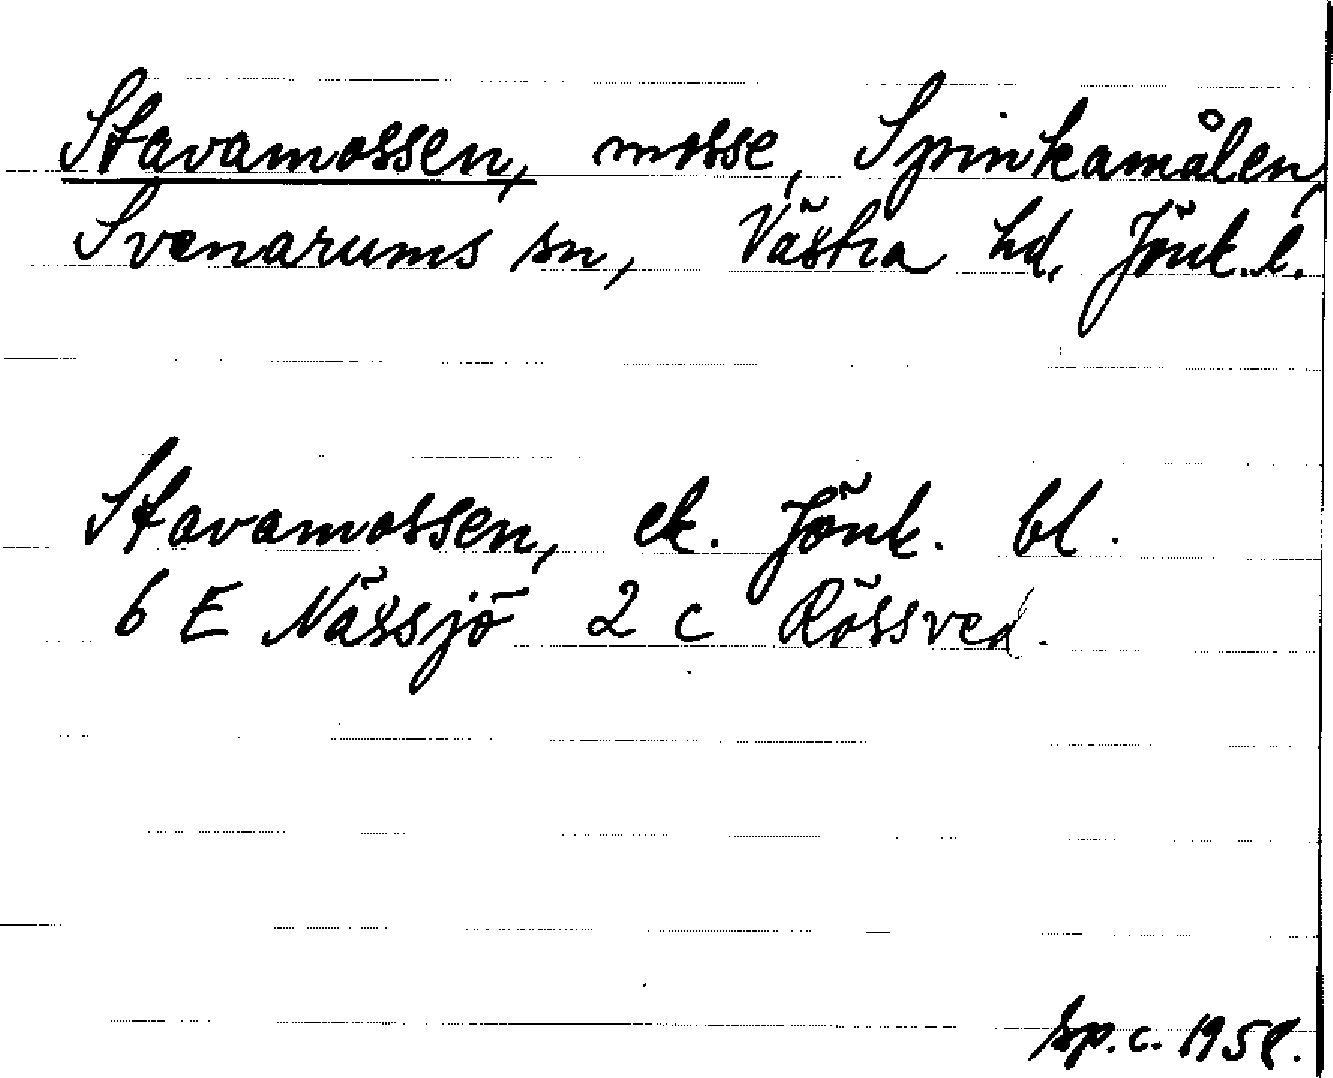 Stavamossen, mosse, Spinkamålen,
Svenarums sn, Västra hd, Jönk. l.
Stavamossen, ek. Jönk. bl.
6 E Nässjö 2 c Rössved.
sp. c. 1958.